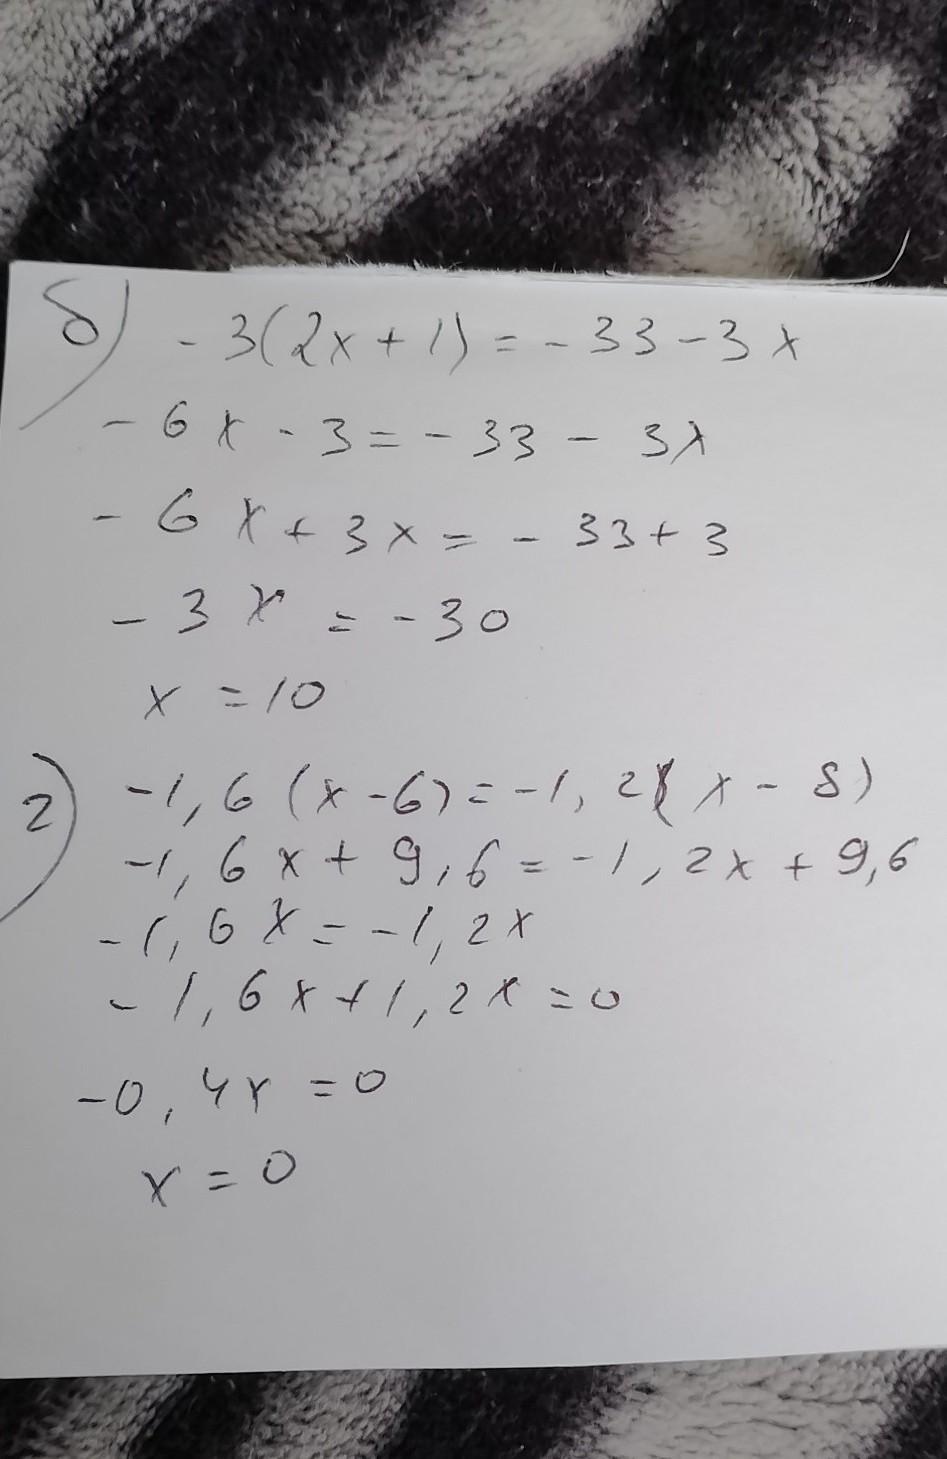 б) -3(2x+1)=-33-3x
-6x-3=-33-3x
-6x+3x=-33+3
-3x=-30
x=10
г) -1,6(x-6)=-1,2(x-8)
-1,6x+9,6=-1,2x+9,6
-1,6x=-1,2x
-1,6x+1,2x=0
-0,4x=0
x=0